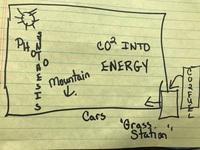 PHOTO
SYNTHESIS
CO² INTO
ENERGY
Mountain
Cars
"Grass
Station"
CO2FUEL